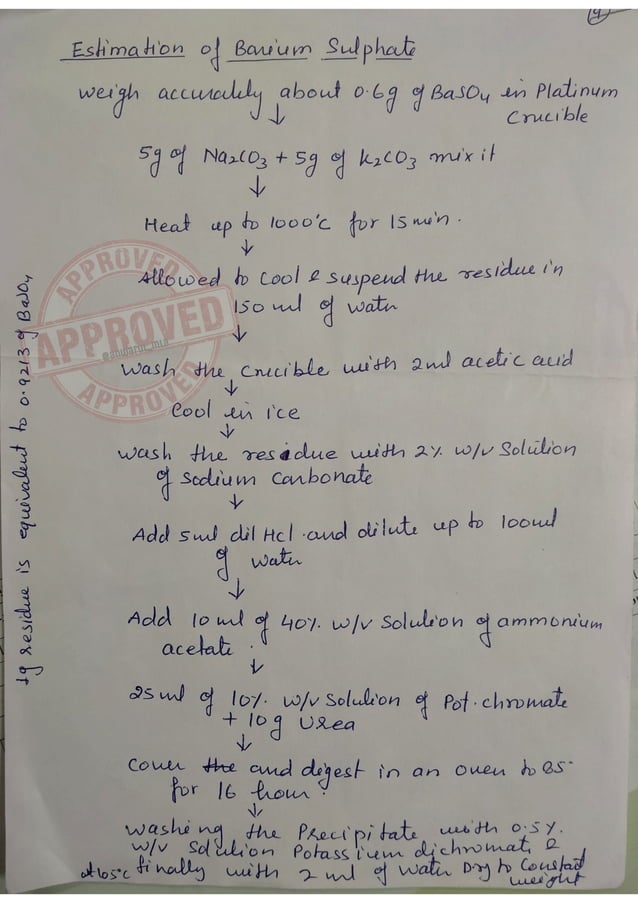 4
Estimation of Barium Sulphate
weigh accurately about 0.6g of BaSO4 in Platinum
Crucible
5g of Na2CO3 + 5g of K2CO3 mix it
Heat up to 1000°C for 15 min.
Allowed to cool & suspend the residue in
150 ml of water
wash the crucible with 2ml acetic acid
Cool in ice
wash the residue with 2% w/v Solution
of sodium carbonate
Add 5ml dil Hcl and dilute up to 100ml
of water
Add 10 ml of 40% w/v Solution of ammonium
acetate.
25 ml of 10% w/v Solution of Pot. chromate
+ 10g Urea
Cover the and digest in an oven to 85°
for 16 hour.
washing the Precipitate with 0.5%
w/v Solution Potassium dichromate &
finally with 2 ml of water Dry to Constant
at 105°C
weight
1g residue is equivalent to 0.9213 g BaSO4
APPROVED
APPROVED
@anwarul_mla
APPROVED